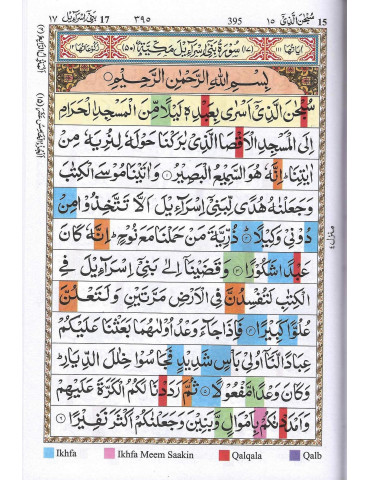 ١٧ بَنِیْٓ اِسْرَآءِیْل 17 ٣٩٥ 395 ١٥ سُبْحٰنَ الَّذِیْٓ 15
اٰیَاتُهَا ١١١ (١٧) سُوْرَةُ بَنِیْٓ اِسْرَآءِیْلَ مَكِّیَّةٌ (٥٠) رُكُوْعَاتُهَا ١٢
بِسْمِ اللّٰهِ الرَّحْمٰنِ الرَّحِیْمِ
سُبْحٰنَ الَّذِیْٓ اَسْرٰی بِعَبْدِهٖ لَیْلًا مِّنَ الْمَسْجِدِ الْحَرَامِ
اِلَی الْمَسْجِدِ الْاَقْصَا الَّذِیْ بٰرَكْنَا حَوْلَهٗ لِنُرِیَهٗ مِنْ
اٰیٰتِنَا ؕ اِنَّهٗ هُوَ السَّمِیْعُ الْبَصِیْرُ ۝ وَاٰتَیْنَا مُوْسَی الْكِتٰبَ
وَجَعَلْنٰهُ هُدًی لِّبَنِیْٓ اِسْرَآءِیْلَ اَلَّا تَتَّخِذُوْا مِنْ
دُوْنِیْ وَكِیْلًا ۝ ذُرِّیَّةَ مَنْ حَمَلْنَا مَعَ نُوْحٍ ؕ اِنَّهٗ كَانَ
عَبْدًا شَكُوْرًا ۝ وَقَضَیْنَآ اِلٰی بَنِیْٓ اِسْرَآءِیْلَ فِی
الْكِتٰبِ لَتُفْسِدُنَّ فِی الْاَرْضِ مَرَّتَیْنِ وَلَتَعْلُنَّ
عُلُوًّا كَبِیْرًا ۝ فَاِذَا جَآءَ وَعْدُ اُوْلٰىهُمَا بَعَثْنَا عَلَیْكُمْ
عِبَادًا لَّنَآ اُولِیْ بَاْسٍ شَدِیْدٍ فَجَاسُوْا خِلٰلَ الدِّیَارِ ؕ
وَكَانَ وَعْدًا مَّفْعُوْلًا ۝ ثُمَّ رَدَدْنَا لَكُمُ الْكَرَّةَ عَلَیْهِمْ
وَاَمْدَدْنٰكُمْ بِاَمْوَالٍ وَّبَنِیْنَ وَجَعَلْنٰكُمْ اَكْثَرَ نَفِیْرًا ۝
Ikhfa Ikhfa Meem Saakin Qalqala Qalb